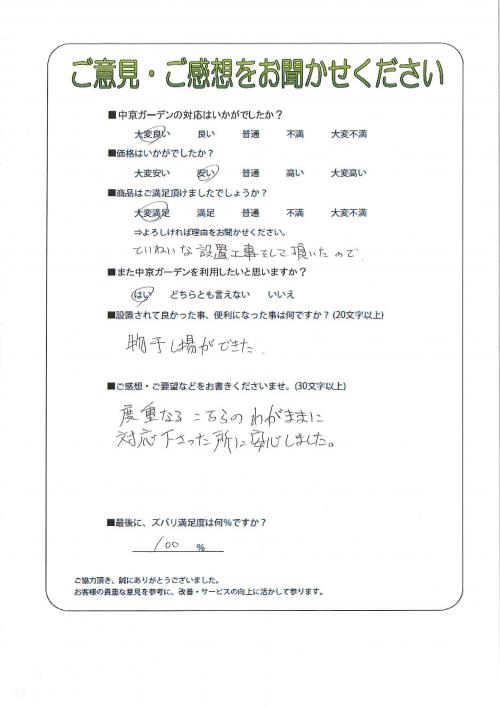 ご意見・ご感想をお聞かせください
■中京ガーデンの対応はいかがでしたか？
大変良い 良い 普通 不満 大変不満
■価格はいかがでしたか？
大変安い 安い 普通 高い 大変高い
■商品はご満足頂けましたでしょうか？
大変満足 満足 普通 不満 大変不満
⇒よろしければ理由をお聞かせください。
ていねいな設置工事をして頂いたので、
■また中京ガーデンを利用したいと思いますか？
はい どちらとも言えない いいえ
■設置されて良かった事、便利になった事は何ですか？(20文字以上)
物干し場ができた.
■ご感想・ご要望などをお書きくださいませ。(30文字以上)
度重なるこちらのわがままに
対応下さった所に安心しました。
■最後に、ズバリ満足度は何％ですか？
100 ％
ご協力頂き、誠にありがとうございました。
お客様の貴重な意見を参考に、改善・サービスの向上に活かして参ります。